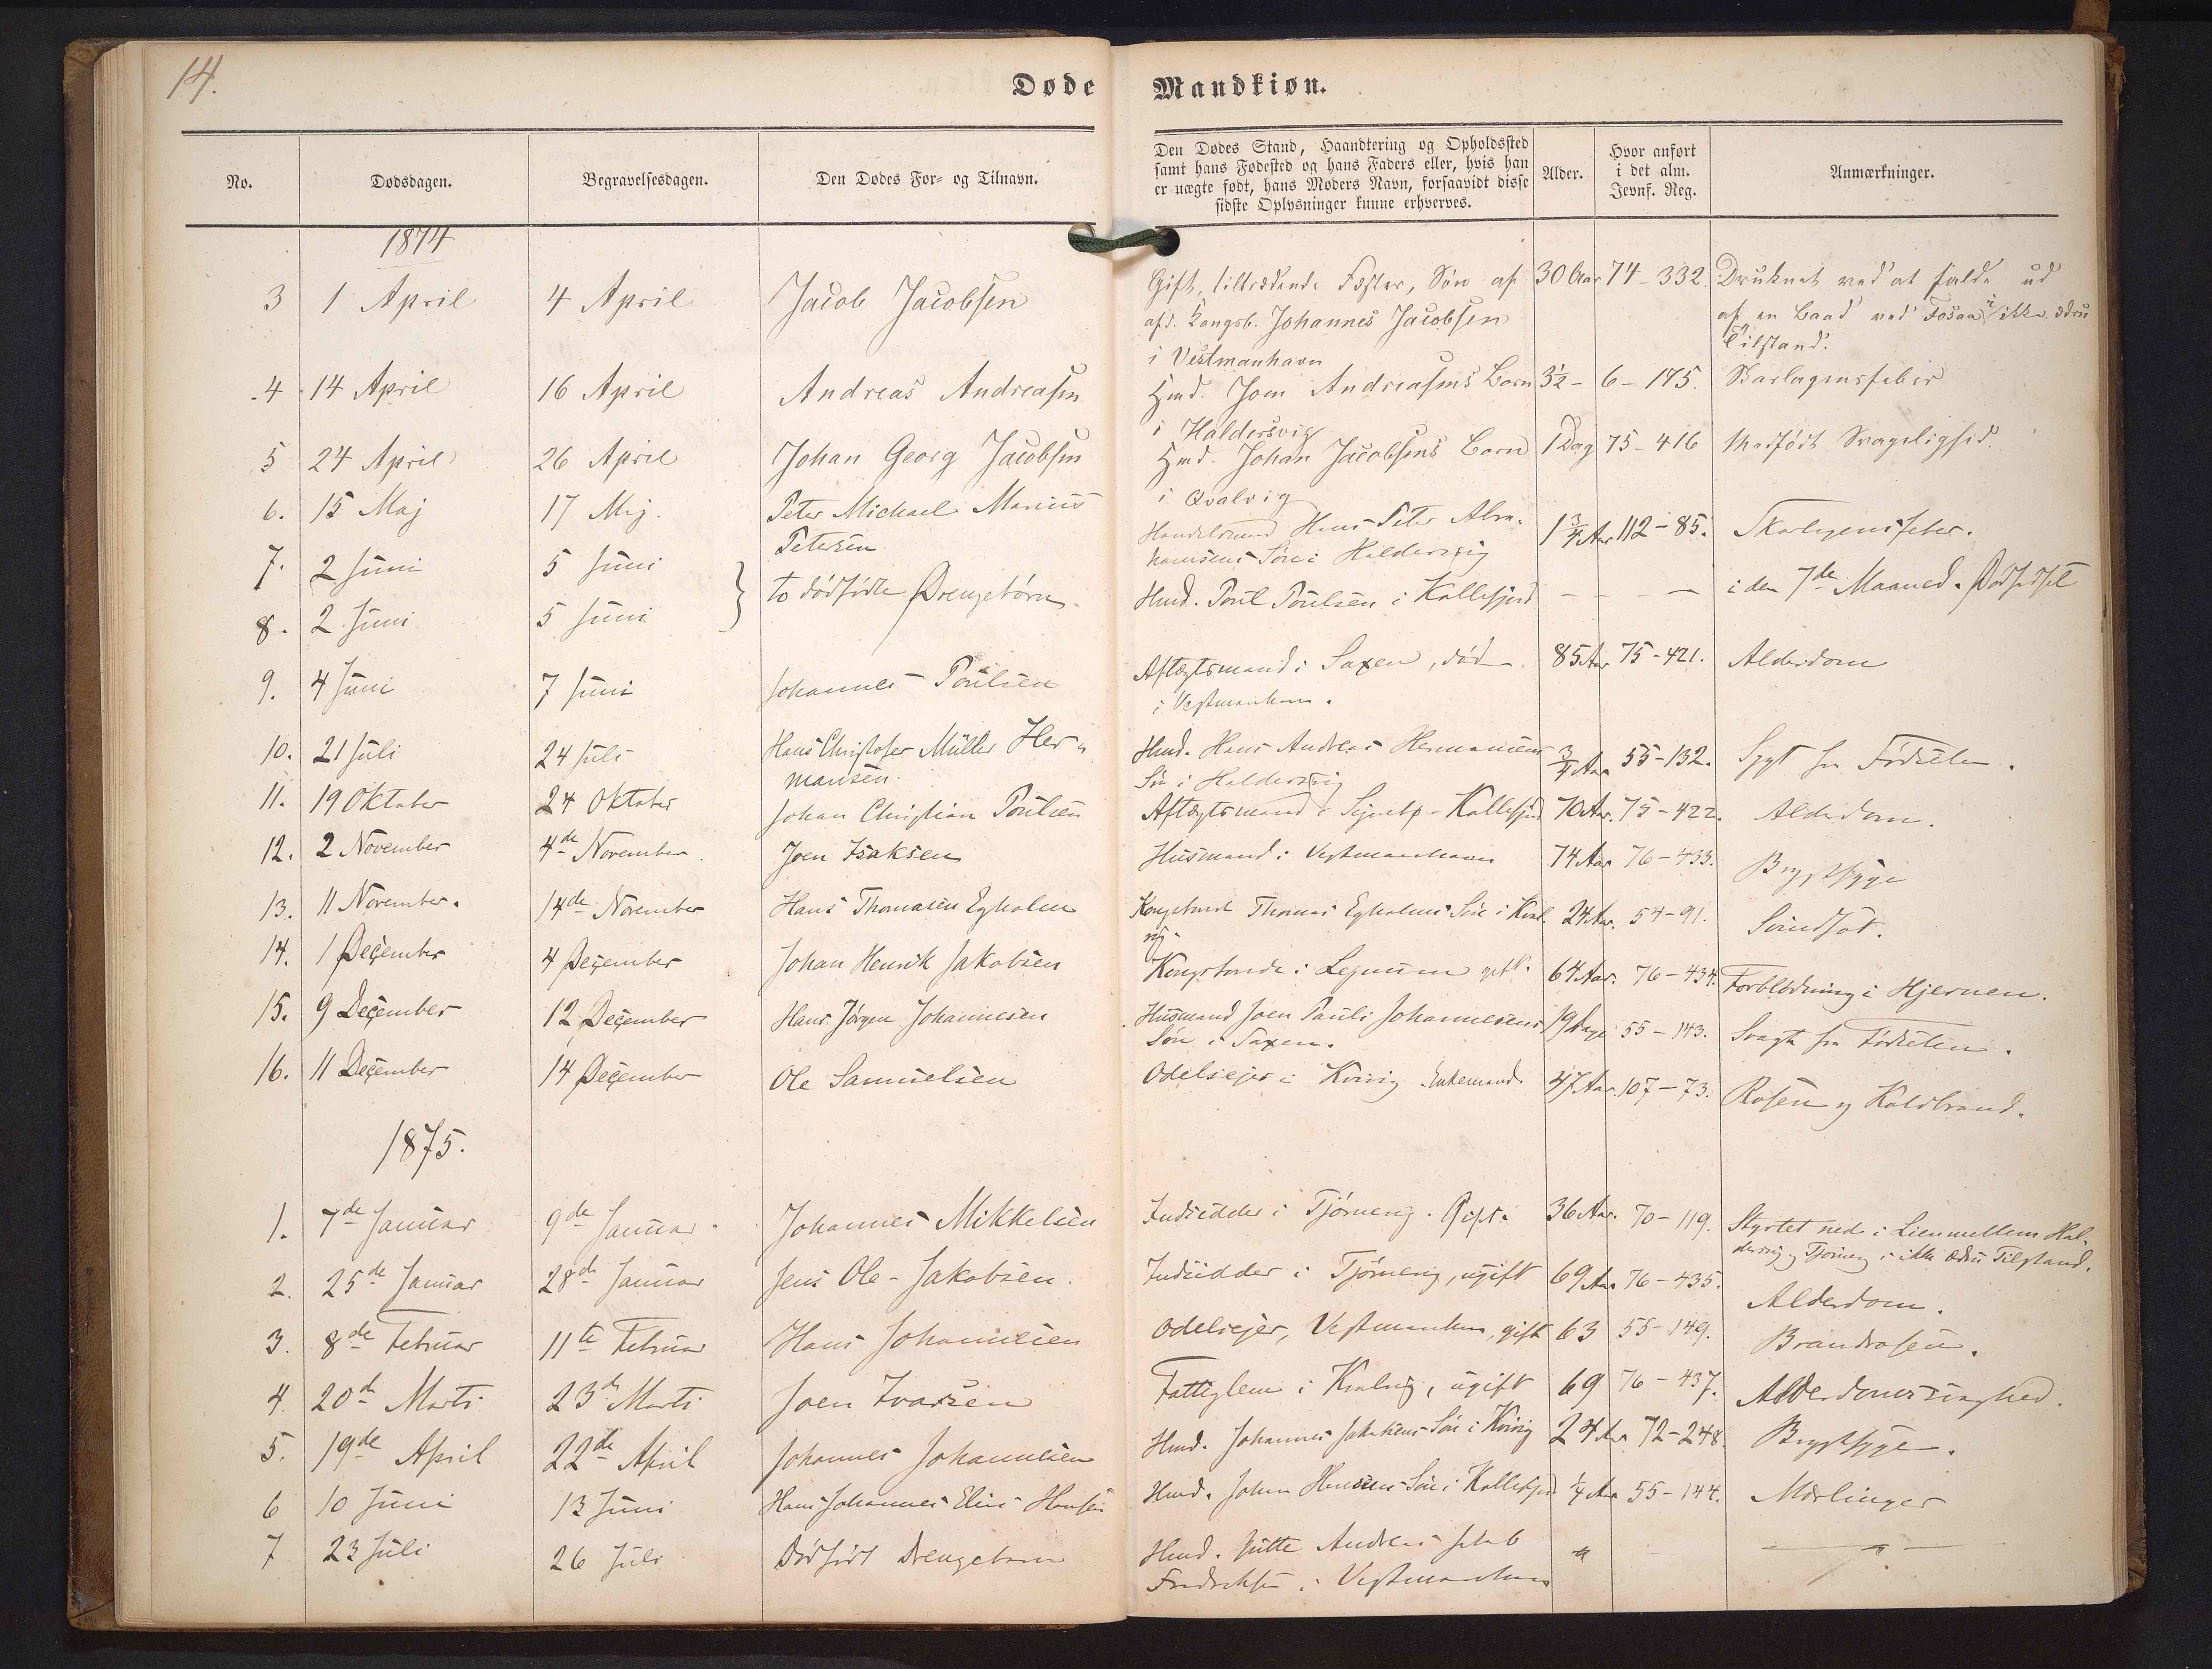 14.
Døde Mandkiøn.
No. Dødsdagen. Begravelsesdagen. Den Dødes For- og Tilnavn.
Den Dødes Stand, Haandtering og Opholdssted
samt hans Fødested og hans Faders eller, hvis han
er uægte født, hans Moders Navn, forsaavidt disse
sidste Oplysninger kunne erhverves.
Alder.
Hvor anført
i det alm.
Jevnf. Reg.
Anmærkninger.
1874
3 1 April 4 April Jacob Jacobsen Gift, tiltrædende Fæster, Søn af 30 Aar 74-332. Druknet ved at falde ud
afd. Kongsb. Johannes Jacobsen af en Baad ved Fosaa i ikke ædru
i Vestmanhavn Tilstand.
4 14 April 16 April Andreas Andreasen Hmd. Joen Andreasens Barn 3½ - 6-175. Skarlagensfeber
i Haldersvig
5 24 April 26 April Johan Georg Jacobsen Hmd. Johan Jacobsens Barn 1 Dag 75-416 Medfødt Svagelighed.
i Qvalvig
6. 15 Maj 17 Maj. Peter Michael Marius Handelsmand Hans Peter Abra- 1¾ Aar 112-85. Skarlagensfeber.
Petersen hamsens Søn i Haldersvig
7. 2 Juni 5 Juni } to dødfødte Drengebørn. Hmd. Poul Poulsen i Kollefjord - - - i den 7de Maaned. Dødfødsel
8. 2 Juni 5 Juni
9. 4 Juni 7 Juni Johannes Poulsen Aftægtsmand i Saxen, død 85 Aar 75-421. Alderdom
i Vestmanhavn.
10. 21 Juli 24 Juli Hans Christofer Müller Her- Hmd. Hans Andreas Hermansens ¾ Aar 55-132. Sygt fra Fødselen.
mansen. Søn i Haldersvig
11. 19 Oktober 24 Oktober Johan Christian Poulsen Aftægtsmand i Kollefjord 70 Aar. 75-422. Alderdom.
12. 2 November 4de November. Joen Isaksen Husmand i Vestmanhavn 74 Aar 76-433. Brystsyge
13. 11 November. 14de November Hans Thomasen Egholm Kongsbond Thomas Egholms Søn i Kval- 24 Aar. 54-91. Vindsot.
vig.
14. 1 December 4 December Johan Henrik Jakobsen Kongsbonde i Lejnum gift. 64 Aar. 76-434. Forblødning i Hjernen.
15. 9 December 12 December Hans Jørgen Johannesen Husmand Joen Pauli Johannesens 19 Dage 55-143. Svagt fra Fødselen.
Søn i Saxen.
16. 11 December 14 December Ole Samuelsen Odelsejer i Kvivig Enkemand. 47 Aar. 107-73. Rosen og Koldbrand.
1875.
1. 7de Januar 9de Januar. Johannes Mikkelsen Indsidder i Tjørnevig. Gift. 36 Aar. 70-119. Styrtet ned i Lien mellem Hal-
dersvig og Tjørnevig i ikke ædru Tilstand.
2. 25de Januar 28de Januar Jens Ole Jakobsen. Indsidder i Tjørnevig, ugift 69 Aar 76-435. Alderdom.
3. 8de Februar 11te Februar Hans Johannesen Odelsejer, Vestmanhavn, gift 63 55-149. Brandrosen.
4. 20de Marts 23de Marts Joen Ivarsen Fattiglem i Kvalvig, ugift 69 76-437. Alderdomssvaghed.
5. 19de April 22de April Johannes Johannesen Hmd. Johannes Jakobsens Søn i Kvivig 24 Aar 72-248. Brystsyge.
6 10 Juni 13 Juni Hans Johannes Elias Hansen Hmd. Johan Hansens Søn i Kollefjord ¼ Aar 55-144. Mæslinger
7 23 Juli 26 Juli Dødfødt Drengebarn Hmd. Andreas Jakob "
Fredriksen i Vestmanhavn